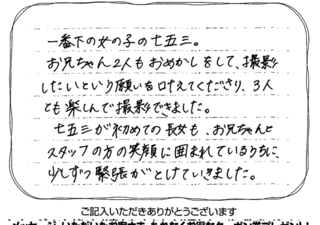 一番下の女の子の七五三。
お兄ちゃん2人もおめかしをして、撮影
したいという願いを叶えてくださり、3人
とも楽しんで撮影できました。
七五三が初めての長女も、お兄ちゃんと
スタッフの方の笑顔に囲まれているうちに、
少しずつ緊張がとけていきました。
ご記入いただきありがとうございます